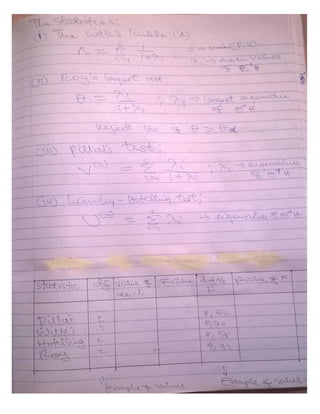 The Statistics;
(i) The Wilk's lambda: (Λ)
Λ = π 1/(1+λi) , s = min(
λi → eigen values of E⁻¹H
(ii) Roy's largest root
θ = λ1/(1+λ1) , λ1 → largest eigenvalue of E⁻¹H
Reject Ho if θ > θα
(iii) Pillai's test;
V(s) = Σ λi/(1+λi) ; λi → eigenvalue of E⁻¹H
(iv) Lawley-Hotelling test;
U(s) = Σ λi → eigenvalue of E⁻¹H
Statistic df Value of each F-value df of F p-value of F
Pillai's 2
Wilk's 2
Hotelling 2
Roy 2
Example of values Example of values